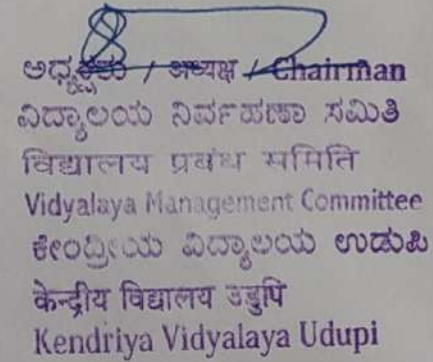 ಅಧ್ಯಕ್ಷರು / अध्यक्ष / Chairman
ವಿದ್ಯಾಲಯ ನಿರ್ವಹಣಾ ಸಮಿತಿ
विद्यालय प्रबंध समिति
Vidyalaya Management Committee
ಕೇಂದ್ರೀಯ ವಿದ್ಯಾಲಯ ಉಡುಪಿ
केन्द्रीय विद्यालय उडुपि
Kendriya Vidyalaya Udupi